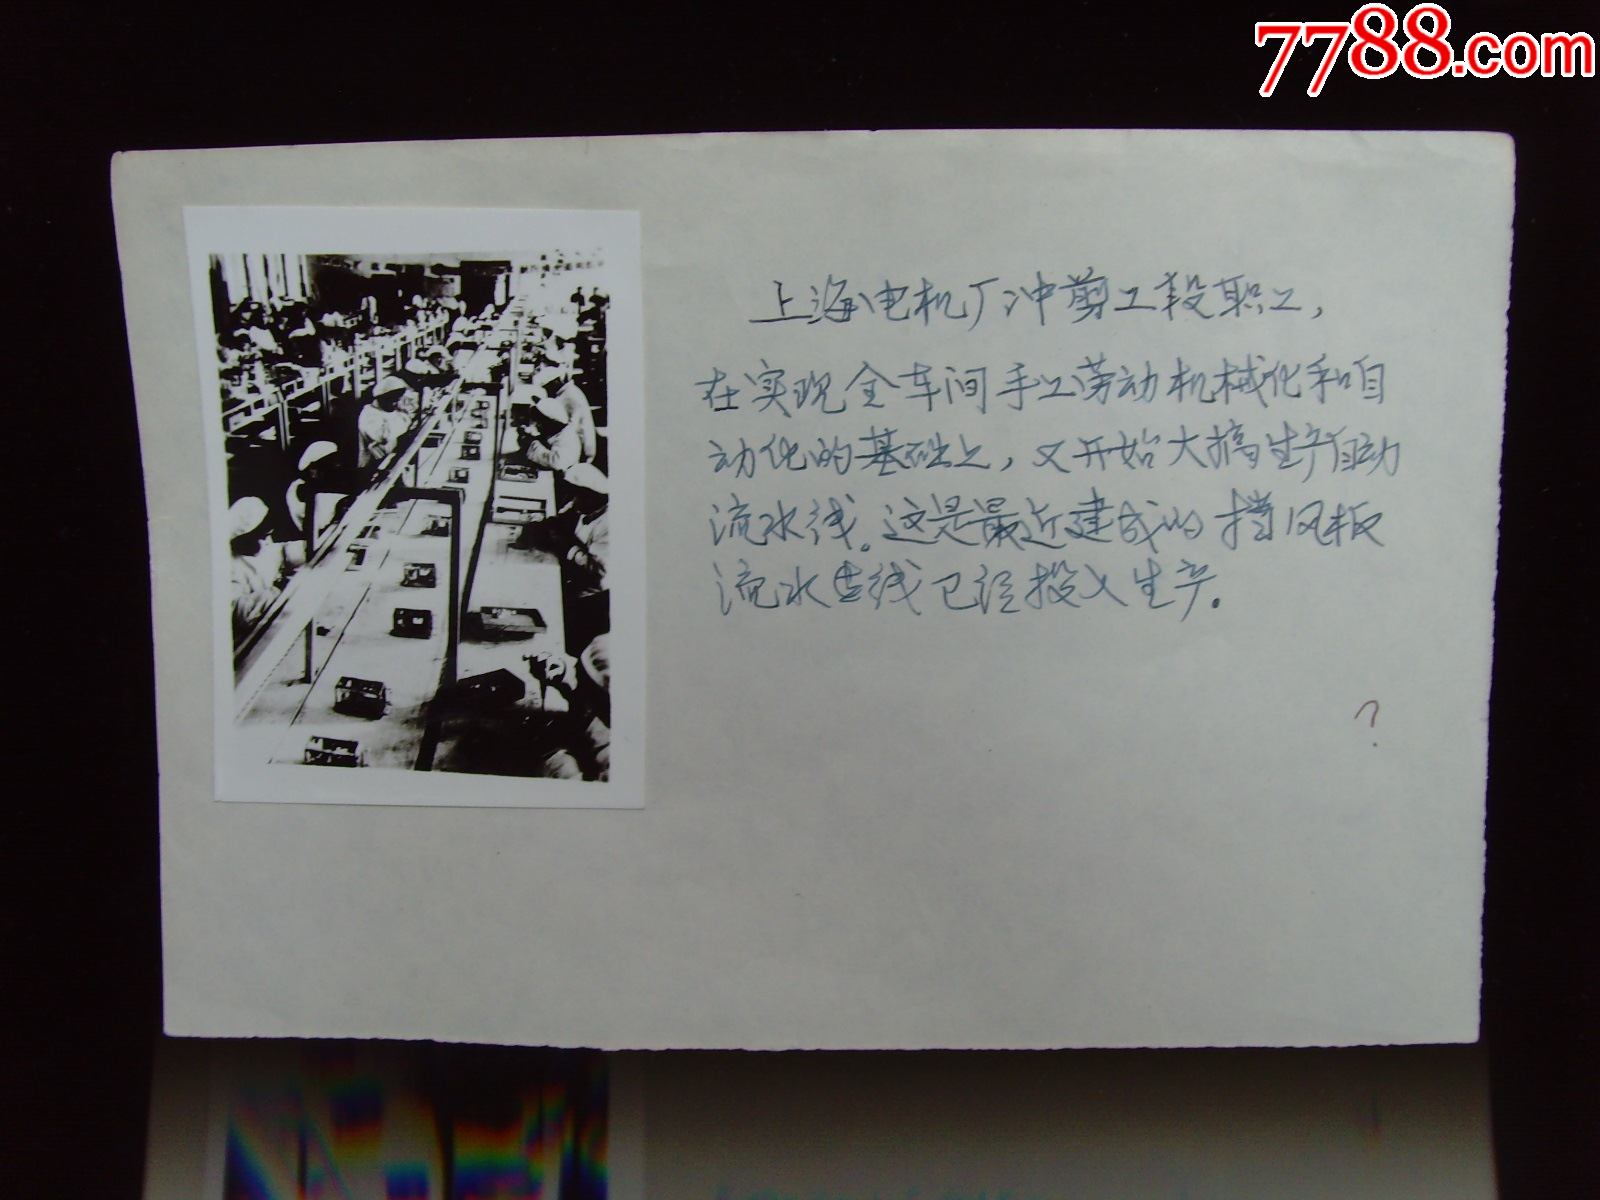 7788.com
上海电机厂冲剪工段职工，
在实现全车间手工劳动机械化和自
动化的基础上，又开始大搞生产自动
流水线。这是最近建成的挡风板
流水线已经投入生产。
?